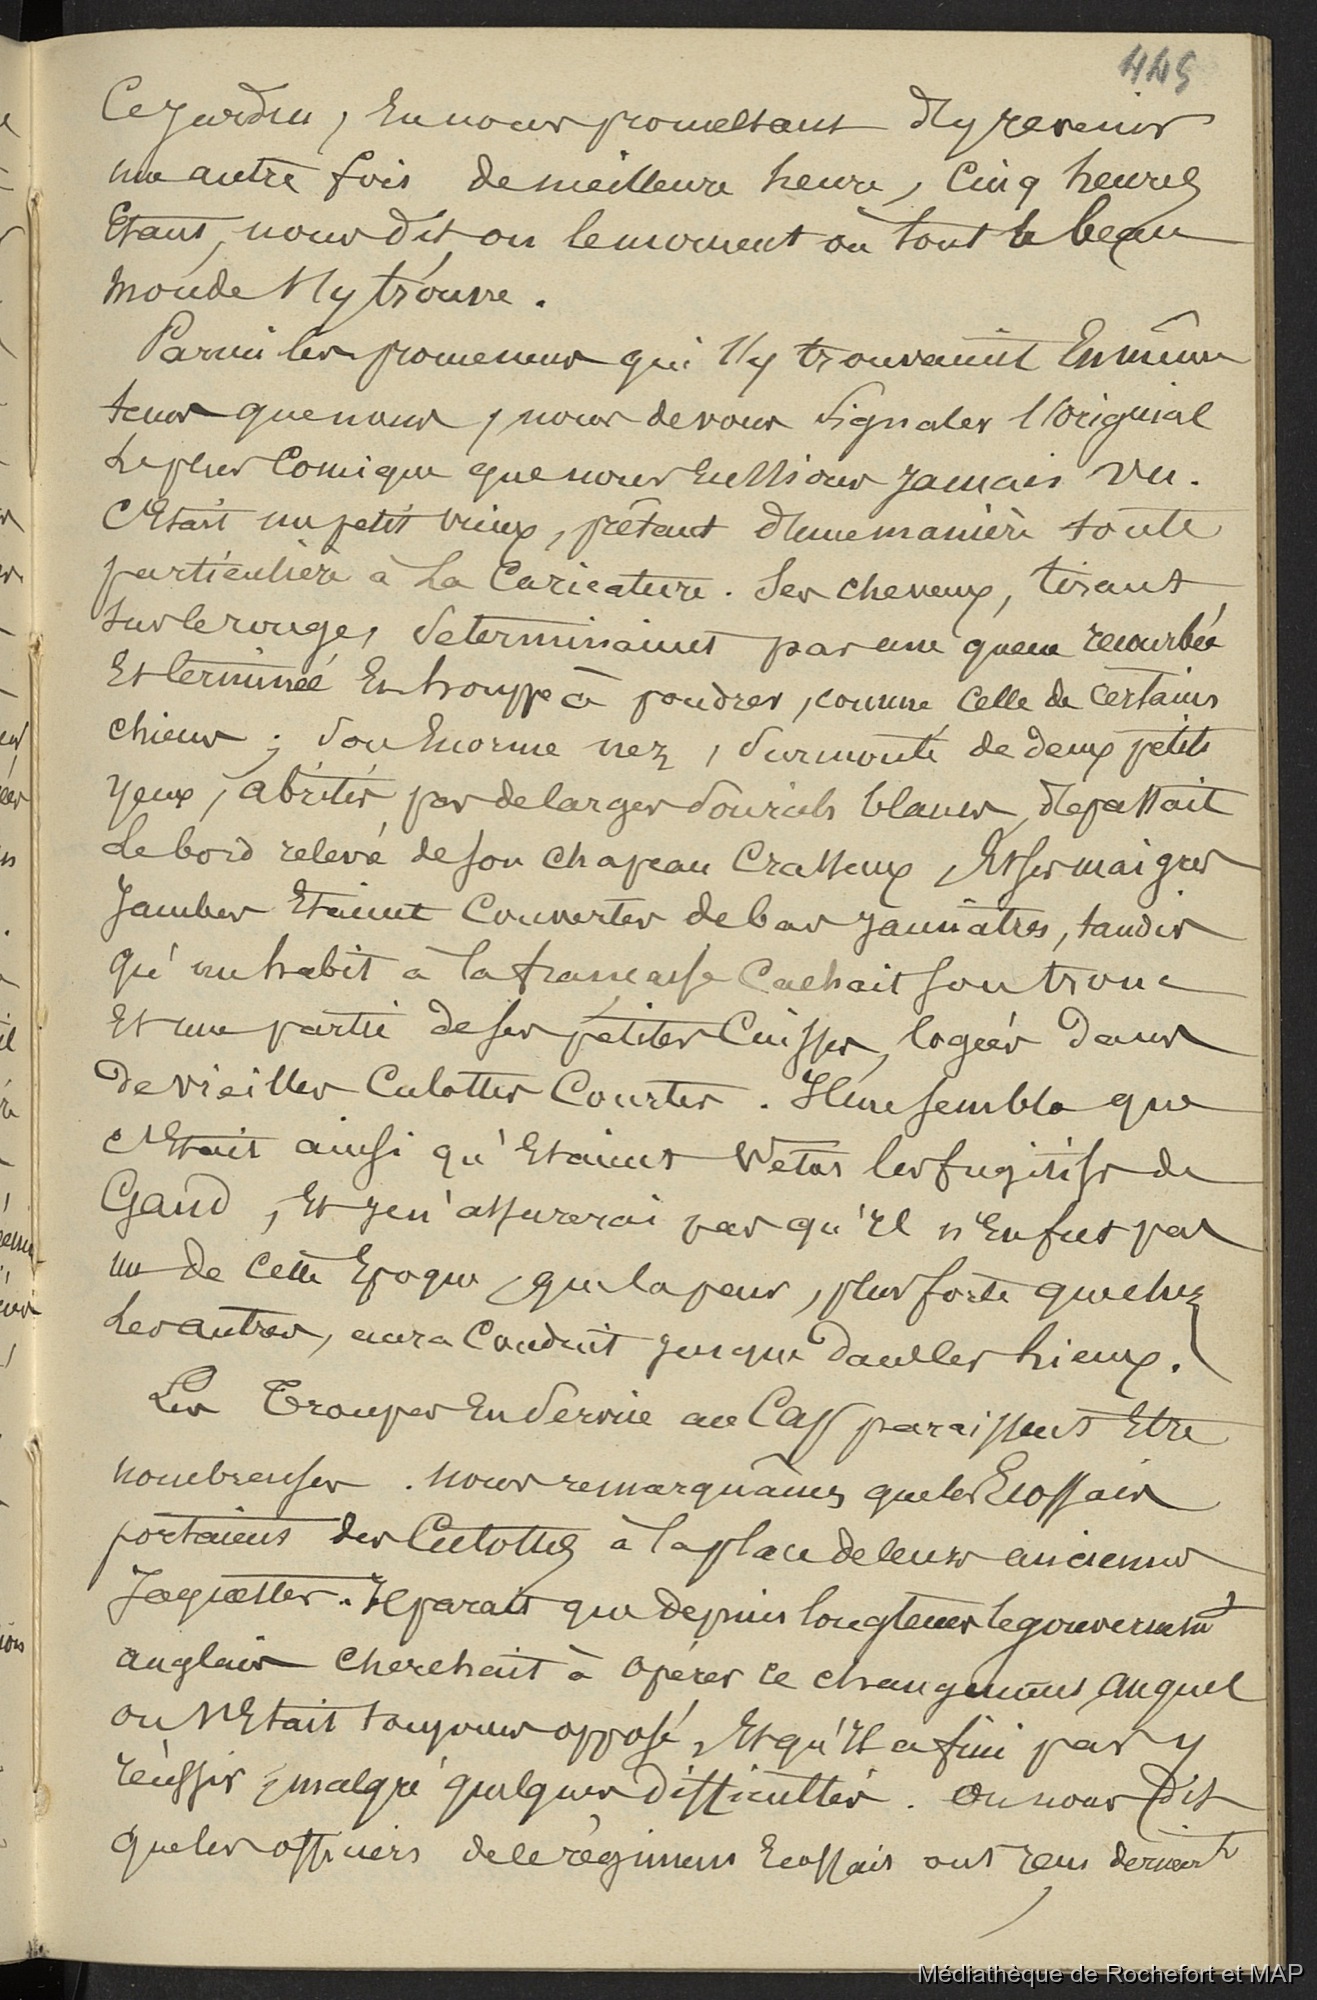 445
Ce jardin, en nous promettant d'y revenir
une autre fois de meilleure heure, Cinq heures
Etant, nous dit on le moment où tout le beau
monde s'y trouve.
Parmi les promeneurs qui s'y trouvaient En même
tems que nous, nous devons signaler l'original
Le plus Comique que nous Eussions jamais vu.
C'était un petit vieux, prêtant d'une manière toute
particulière à la Caricature. Ses cheveux, tirant
sur le rouge, se terminaient par une queue recourbée
Et terminée En houppe à poudrer, comme Celle de certains
chiens ; son Enorme nez, surmonté de deux petits
yeux, abrités par de larges sourcils blancs, dépassait
Le bord relevé de son chapeau Crasseux, Et ses maigres
Jambes Etaient Couvertes de bas jaunâtres, tandis
qu'un habit à la française Cachait son tronc
Et une partie de ses petites Cuisses, logées dans
De vieilles Culottes Courtes. Il me sembla que
C'Etait ainsi qu'Etaient vetus les fugitifs de
Gand, Et je n'assurerai pas qu'il n'En fut pas
un de Cette Epoque, que la peur, plus forte que chez
Les autres, aura Conduit jusque dans les lieux.
Les Troupes En Service au Cap paraissent Etre
nombreuses. Nous remarquâmes que les Ecossais
portaient des Culottes à la place de leurs anciennes
Jaquettes. Il parait que depuis longtems le gouvernemt
anglais Cherchait à opérer ce changement, auquel
on s'Etait toujours opposé, Et qu'Il a fini par y
réussir, malgré quelques difficultés. On nous dit
que les officiers de ce régiment Ecossais ont reçu dernièrt
Médiathèque de Rochefort et MAP